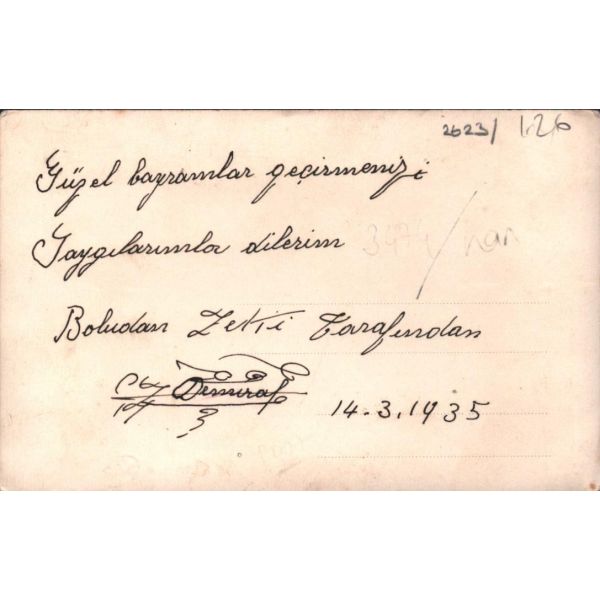 2623/ 126
Güzel bayramlar geçirmenizi
Saygılarımla dilerim
Boludan Zeki Tarafından
Demiral
14.3.1935